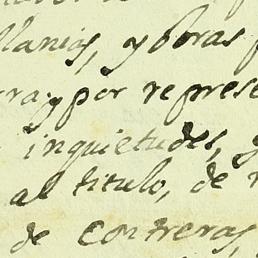 llanias, y obras
ra; y por represe
inquietudes, y
al titulo, de
de contreras,